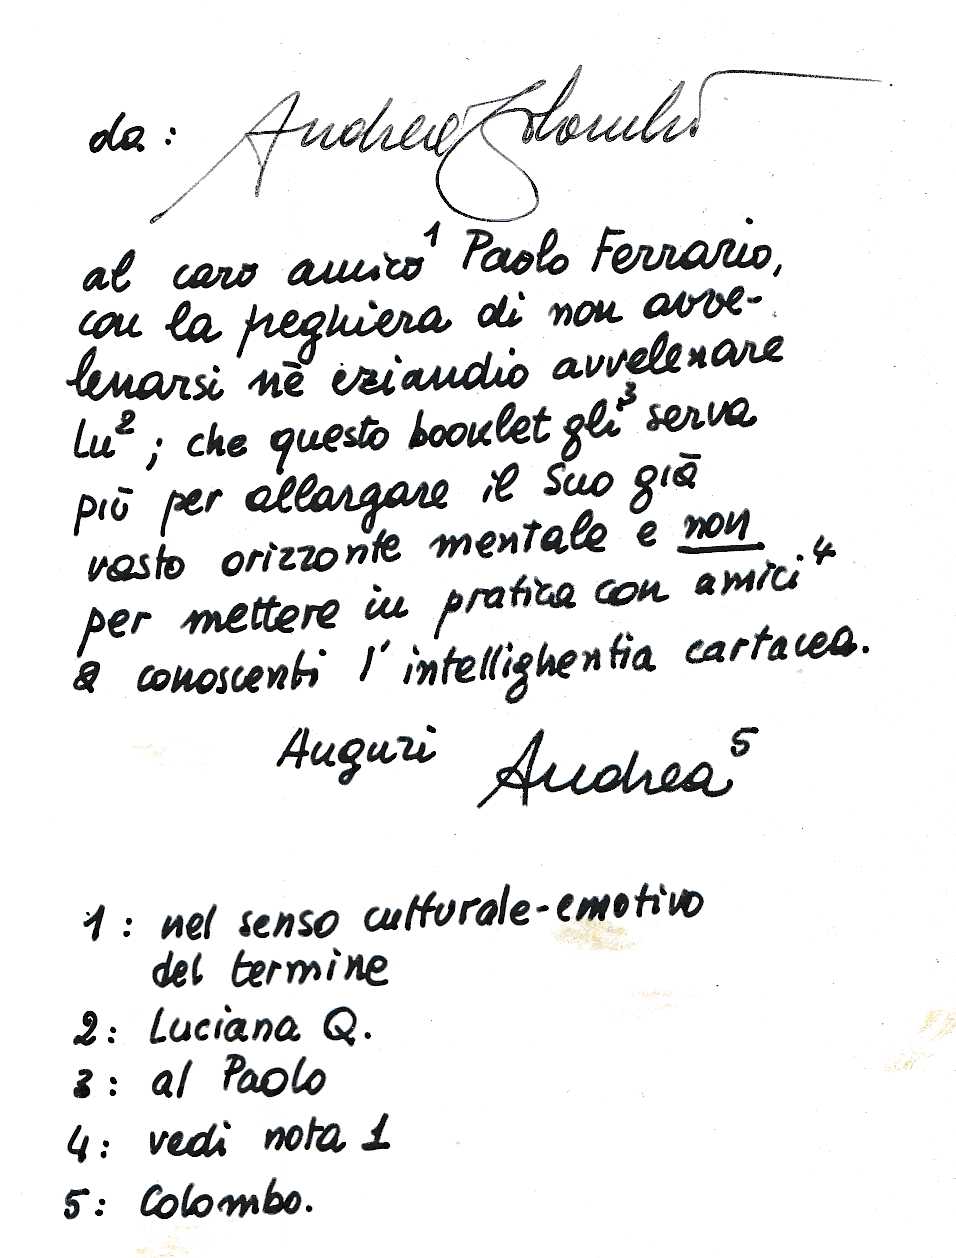 da: Andrea Colombo
al caro amico¹ Paolo Ferrario,
con la preghiera di non avve-
lenarsi nè eziandio avvelenare
Lu²; che questo booklet gli³ serva
più per allargare il suo già
vasto orizzonte mentale e non
per mettere in pratica con amici⁴
e conoscenti l'intellighentia cartacea.
Auguri Andrea⁵
1: nel senso culturale-emotivo
del termine
2: Luciana Q.
3: al Paolo
4: vedi nota 1
5: Colombo.